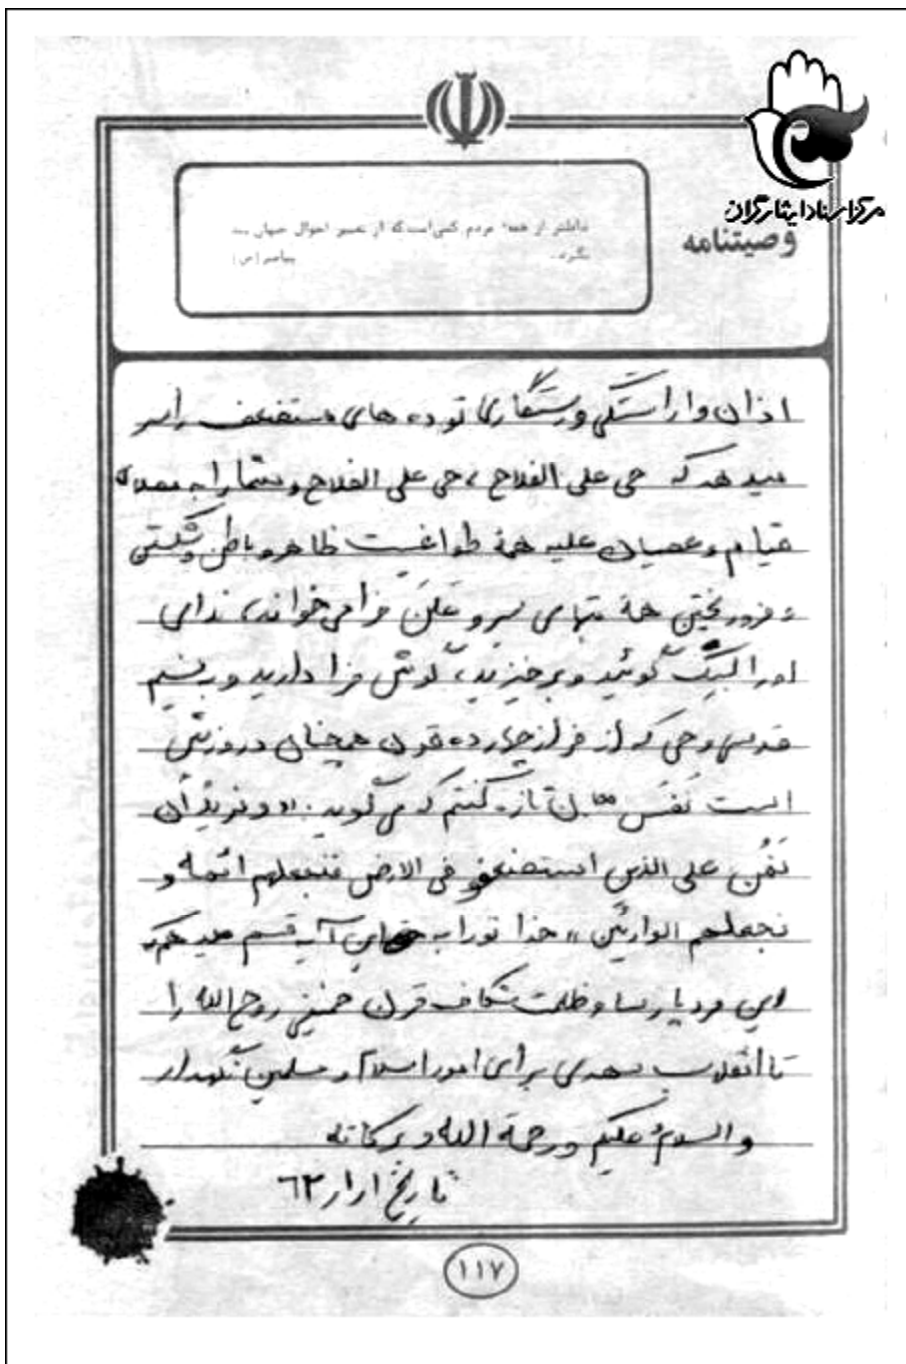 مرکز اسناد ایثارگران
وصیتنامه
مردم کسی است که از تغییر احوال جهان پند
بگیرد. پیامبر (ص)
اذان وارستگی و رستگاری توده های مستضعف را سر
میدهد که حی علی الفلاح، حی علی الفلاح و شما را به
قیام و عصیان علیه همه طواغیت ظاهر و باطن و شکستن
و فرو ریختن همه بتهای سر و علن فرا می خواند، ندای
او را لبیک گوئید و برخیزید، گوش فرا دارید و به نسیم
قدسی وحی که از فراز چهارده قرن همچنان در وزش
است نفس تازه کنیم که می گوید: «و نرید أن
نمن علی الذین استضعفو فی الارض فنجعلهم ائمه و
نجعلهم الوارثین» خدا تو را به آیه قسم میدهم
این مرد پارسا و ظلمت شکاف قرن خمینی روح الله را
تا انقلاب مهدی برای امور اسلام و مسلمین نگهدار
والسلام علیکم و رحمة الله و برکاته
تاریخ ۱ر۱ر۶۳
۱۱۷